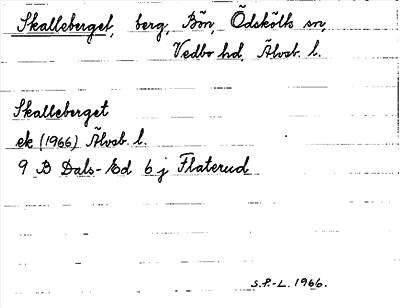 Skalleberget, berg, Bön, Ödskölts sn,
Vedbo hd, Älvsb. l.
Skalleberget
ek (1966) Älvsb. l.
9 B Dals-Ed 6 j Flaterud
S.P.-L. 1966.